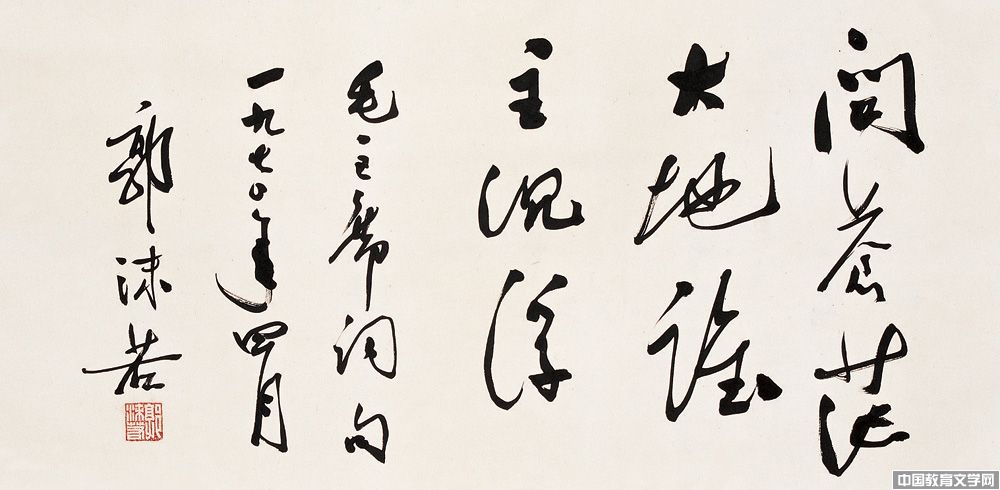 问苍茫
大地谁
主沉浮
毛主席词句
一九七〇年四月
郭沫若
郭沫若
中国教育文学网